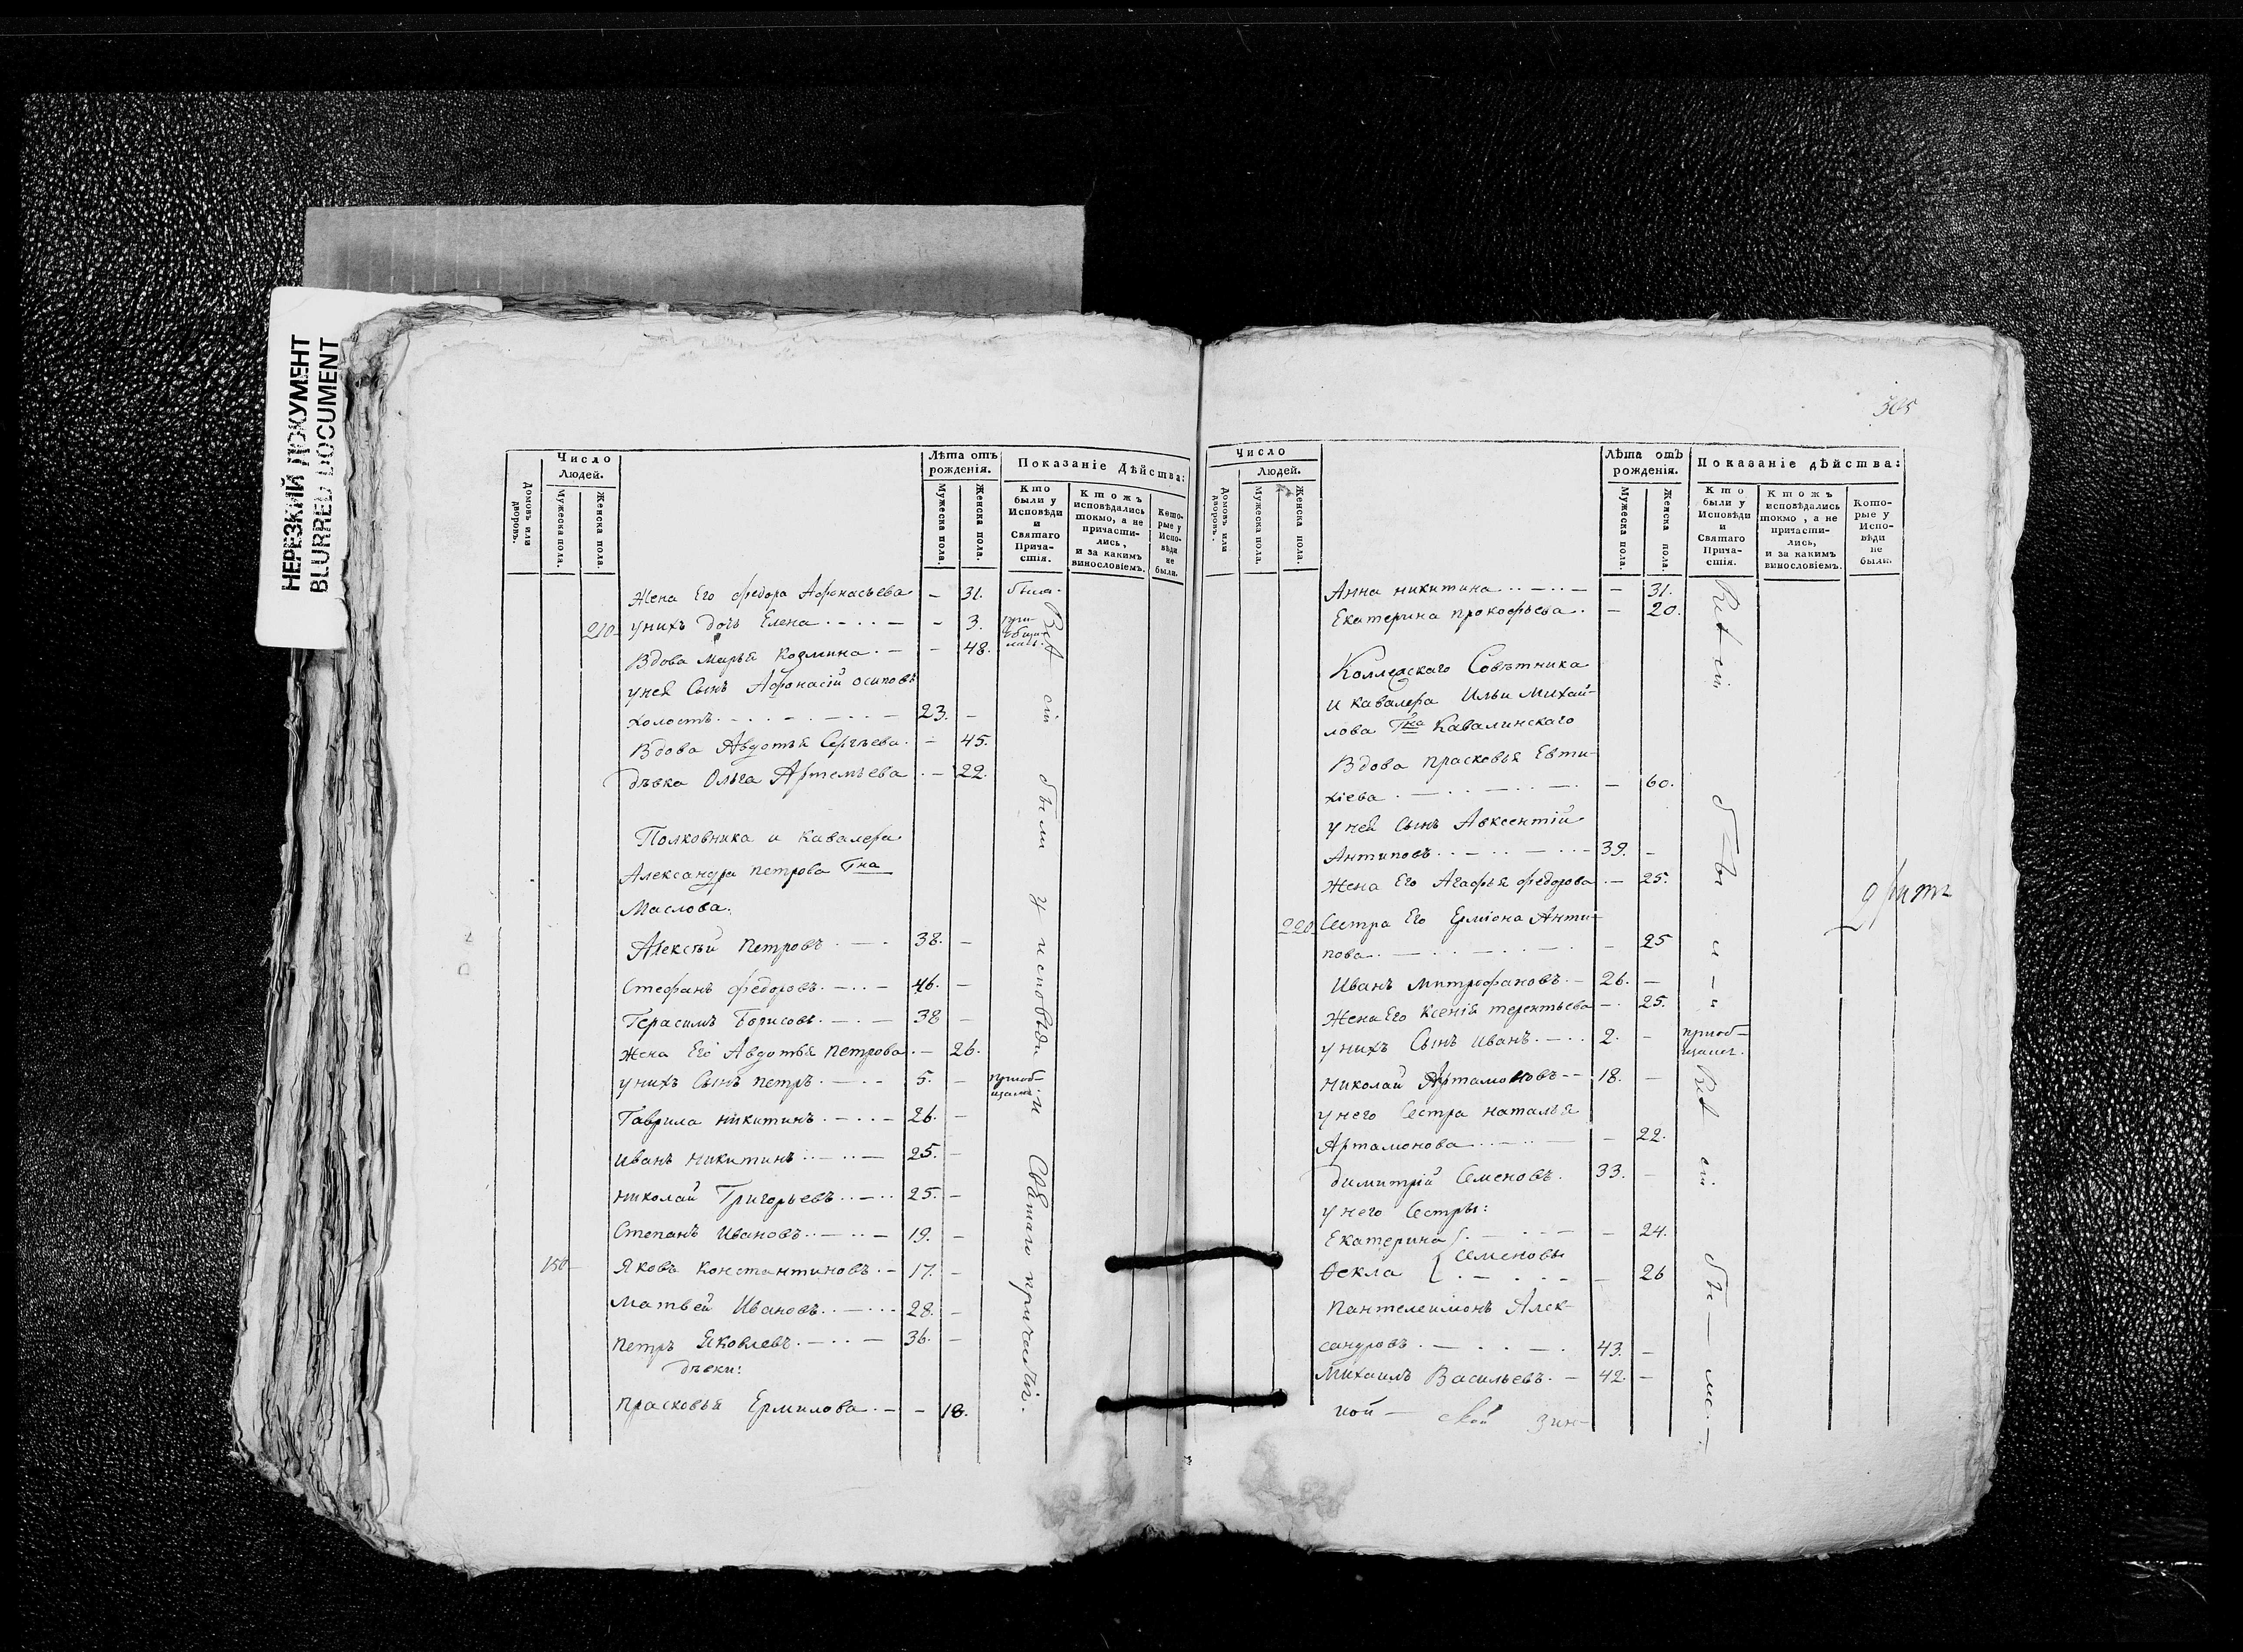 НЕРЕЗКИЙ ДОКУМЕНТ
BLURRED DOCUMENT
Число
Людей.
Домовъ или дворовъ.
Мужеска пола.
Женска пола.
Лѣта отъ рожденія.
Мужеска пола.
Женска пола.
Показаніе дѣйства:
Кто были у Исповѣди и Святаго Прича-стія.
Ктожъ исповѣдались токмо, а не причасти-лись, и за какимъ винословіемъ.
Кото-рые у Испо-вѣди не были.
Жена Его Федора Афонасьева - 31. была.
210 у нихъ дочь Елена - 3.
Вдова Марья Козмина - 48.
у ней Сынъ Афонасій Осиповъ
холостъ 23. -
Вдова Авдотья Сергѣева - 45.
дѣвка Ольга Артемьева - 22.
Полковника и Кавалера
Александра Петрова Гна
Маслова.
Алексѣй Петровъ 38. -
Стефанъ Федоровъ 46. -
Герасимъ Борисовъ 38 -
Жена Его Авдотья Петрова - 26.
у нихъ Сынъ Петръ 5. - приоб-
щался
Гаврила Никитинъ 26. -
Иванъ Никитинъ 25. -
Николай Григорьевъ 25. -
Степанъ Ивановъ 19. -
150 Яковъ Константиновъ 17. -
Матвей Ивановъ 28. -
Петръ Яковлевъ 36. -
дѣвки:
Прасковья Ермилова - 18.
Всѣ сіи были у исповѣди и Святаго причастія.
Число
Людей.
Домовъ или дворовъ.
Мужеска пола.
Женска пола.
Лѣта отъ рожденія.
Мужеска пола.
Женска пола.
Показаніе дѣйства:
Кто были у Исповѣди и Святаго Прича-стія.
Ктожъ исповѣдались токмо, а не причасти-лись, и за какимъ винословіемъ.
Кото-рые у Испо-вѣди не были.
Анна Никитина - 31.
Екатерина Прокофьева - 20.
Коллежскаго Совѣтника
и Кавалера Ильи Михай-
лова Гна Кавалинскаго
Вдова Прасковья Евти-
хіева - 60.
у ней Сынъ Авксентій
Антиповъ 39. -
Жена Его Агафья Федорова - 25.
220 Сестра Его Ерміона Анти-
пова - 25
Иванъ Митрофановъ 26. -
Жена Его Ксенія Терентьева - 25.
у нихъ Сынъ Иванъ 2. - приоб-
щался.
Николай Артамоновъ 18. -
у него Сестра Наталья
Артамонова - 22.
Димитрій Семеновъ 33. -
у него Сестры:
Екатерина - 24.
Семеновы
Фекла - 26
Пантелеимонъ Алек-
сандровъ 43. -
Михаилъ Васильевъ 42. -